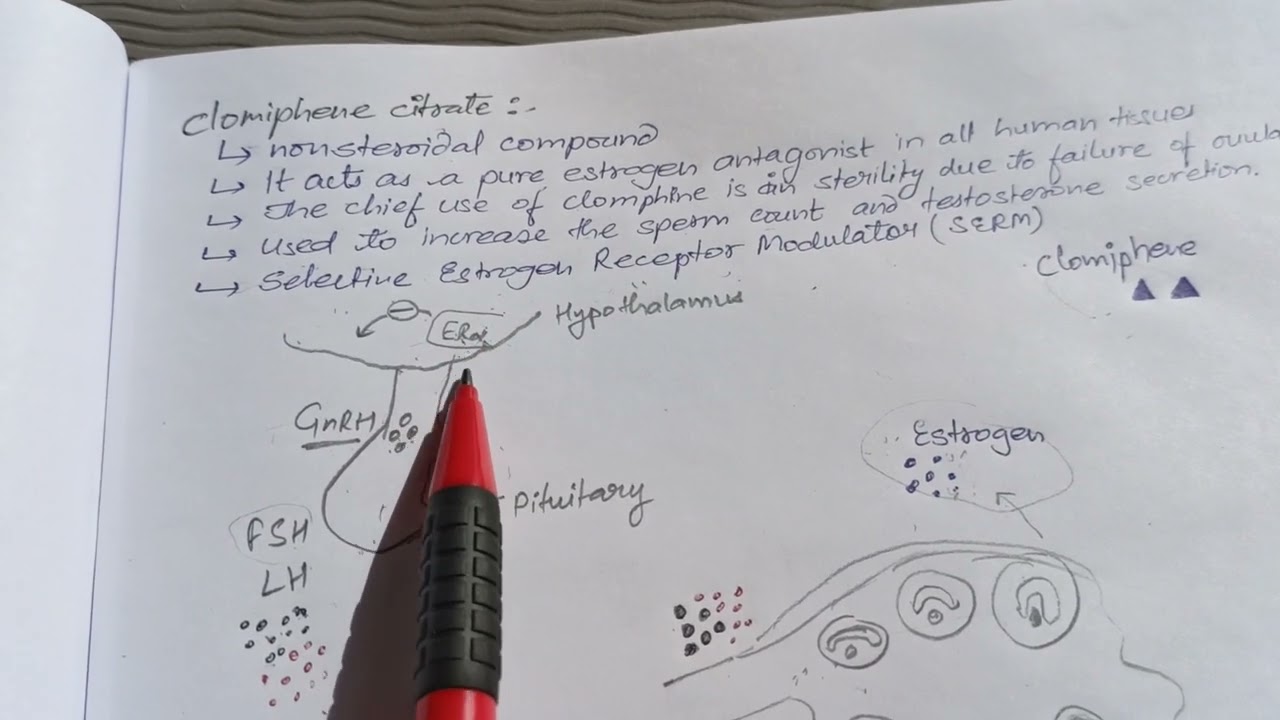 Clomiphene citrate :-
↳ nonsteroidal compound
↳ It acts as a pure estrogen antagonist in all human tissues
↳ The chief use of clomphine is in sterility due to failure of ovula
↳ used to increase the sperm count and testosterone secretion.
↳ Selective Estrogen Receptor Modulator (SERM)
Clomiphene
ERα
Hypothalamus
GnRH
Estrogen
Pituitary
FSH
LH